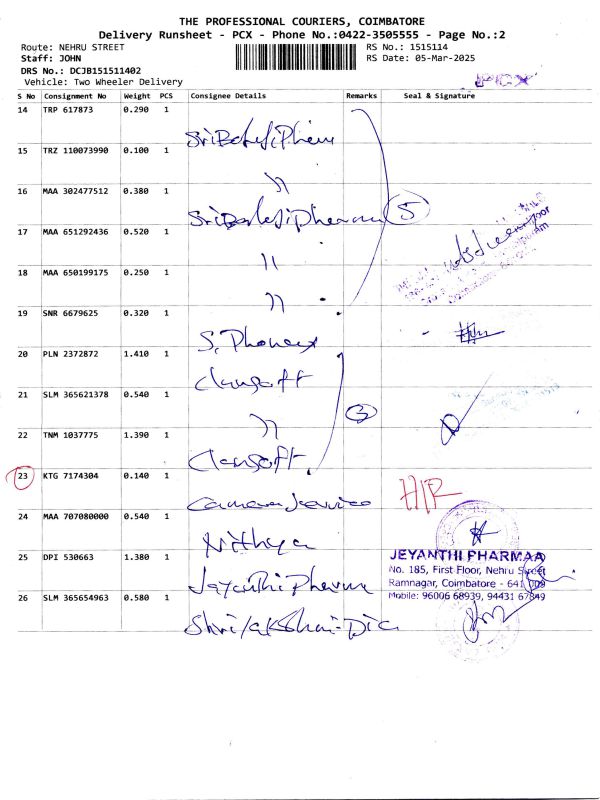 THE PROFESSIONAL COURIERS, COIMBATORE
Delivery Runsheet - PCX - Phone No.:0422-3505555 - Page No.:2
Route: NEHRU STREET
RS No.: 1515114
Staff: JOHN
RS Date: 05-Mar-2025
DRS No.: DCJB151511402
Vehicle: Two Wheeler Delivery
PCX
S No Consignment No Weight PCS Consignee Details Remarks Seal & Signature
14 TRP 617873 0.290 1
15 TRZ 110073990 0.100 1
16 MAA 302477512 0.380 1
5
17 MAA 651292436 0.520 1
18 MAA 650199175 0.250 1
19 SNR 6679625 0.320 1
20 PLN 2372872 1.410 1
21 SLM 365621378 0.540 1
3
22 TNM 1037775 1.390 1
23 KTG 7174304 0.140 1
H/R
24 MAA 707080000 0.540 1
Nithya
25 DPI 530663 1.380 1
JEYANTHI PHARMAA
No. 185, First Floor, Nehru Street
Ramnagar, Coimbatore - 641 009
Mobile: 96006 68939, 94431 67849
Jayanthi Pharma
26 SLM 365654963 0.580 1